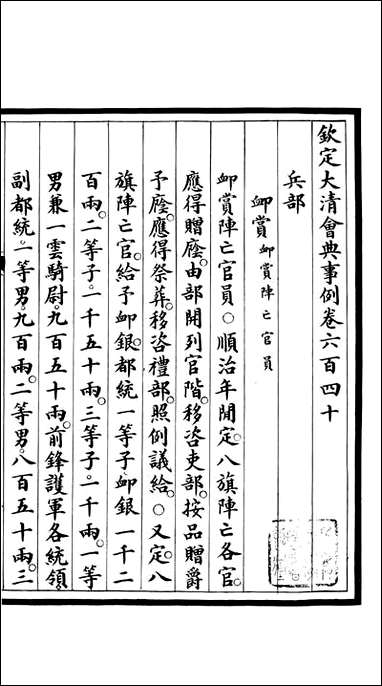 欽定大清會典事例卷六百四十
兵部
卹賞卹賞陣亡官員
卹賞陣亡官員○順治年閒定。八旗陣亡各官。
應得贈廕。由部開列官階。移咨吏部。按品贈爵
予廕。應得祭葬。移咨禮部。照例議給。○又定。八
旗陣亡官。給予卹銀。都統一等子卹銀一千二
百兩。二等子。一千五十兩。三等子。一千兩。一等
男兼一雲騎尉。九百五十兩。前鋒護軍各統領。
副都統。一等男。九百兩。二等男。八百五十兩。三